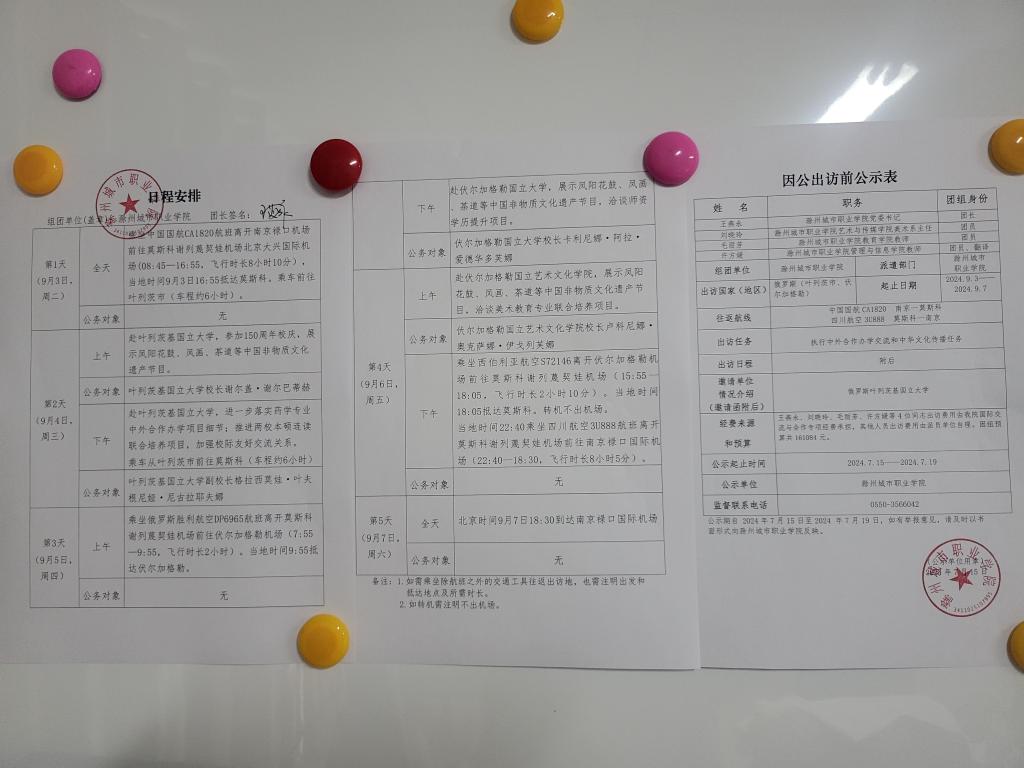 日程安排
组团单位(盖章):滁州城市职业学院 团长签名:
第1天
(9月3日,
周二)
全天
中国国航CA1820航班离开南京禄口机场
前往莫斯科谢列蔑契娃机场北京大兴国际机
场(08:45—16:55,飞行时长8小时10分),
当地时间9月3日16:55抵达莫斯科。乘车前往
叶列茨市(车程约6小时)。
公务对象
无
第2天
(9月4日,
周三)
上午
赴叶列茨国立大学,参加150周年校庆,展
示凤阳花鼓、凤画、茶道等中国非物质文化
遗产节目。
公务对象
叶列茨基国立大学校长谢尔盖·谢尔巴蒂赫
下午
赴叶列茨基国立大学,进一步落实药学专业
中外合作办学项目细节;推进两校本硕连读
联合培养项目,加强校际友好交流关系。
乘车从叶列茨市前往莫斯科(车程约6小时)
公务对象
叶列茨基国立大学副校长格拉西莫娃·叶夫
根尼娅·尼古拉耶夫娜
第3天
(9月5日,
周四)
上午
乘坐俄罗斯胜利航空DP6965航班离开莫斯科
谢列蔑契娃机场前往伏尔加格勒机场(7:55
—9:55,飞行时长2小时)。当地时间9:55抵
达伏尔加格勒。
公务对象
无
下午
赴伏尔加格勒国立大学,展示凤阳花鼓、凤画
、茶道等中国非物质文化遗产节目,洽谈师资
学历提升项目。
公务对象
伏尔加格勒国立大学校长卡利尼娜·阿拉·
爱德华多芙娜
第4天
(9月6日,
周五)
上午
赴伏尔加格勒国立艺术文化学院,展示凤阳
花鼓、凤画、茶道等中国非物质文化遗产节
目。洽谈美术教育专业联合培养项目。
公务对象
伏尔加格勒国立艺术文化学院校长卢科尼娜·
奥克萨娜·伊戈列芙娜
下午
乘坐西伯利亚航空S72146离开伏尔加格勒机
场前往莫斯科谢列蔑契娃机场(15:55—
18:05,飞行时长2小时10分)。当地时间
18:05抵达莫斯科。转机不出机场。
当地时间22:40乘坐四川航空3U888航班离开
莫斯科谢列蔑契娃机场前往南京禄口国际机
场(22:40—18:30,飞行时长8小时5分)。
公务对象
无
第5天
(9月7日,
周六)
全天
北京时间9月7日18:30到达南京禄口国际机场
公务对象
无
备注:1.如需乘坐除航班之外的交通工具往返出访地,也需注明出发和
抵达地点及所需时长。
2.如转机需注明不出机场。
因公出访前公示表
姓 名 职务 团组身份
王燕永 滁州城市职业学院党委书记 团长
刘晓玲 滁州城市职业学院艺术与传媒学院美术系主任 团员
毛丽芳 滁州城市职业学院教育学院教师 团员
许方媛 滁州城市职业学院管理与信息学院教师 团员、翻译
组团单位 滁州城市职业学院 派遣部门 滁州城市
职业学院
出访国家(地区) 俄罗斯(叶列茨市、伏
尔加格勒) 起止日期 2024.9.3—
2024.9.7
往返航线
中国国航CA1820 南京—莫斯科
四川航空3U888 莫斯科—南京
出访任务 执行中外合作办学交流和中华文化传播任务
出访日程 附后
邀请单位
情况介绍
(邀请函附后)
俄罗斯叶列茨基国立大学
经费来源
和预算
王燕永、刘晓玲、毛丽芳、许方媛等4位同志出访费用由我院国际交
流与合作专项经费承担,其他人员出访费用由派员单位自理。团组预
算共161084元。
公示起止时间 2024.7.15——2024.7.19
公示单位 滁州城市职业学院
监督联系电话 0550-3566042
公示期自2024年7月15日至2024年7月19日,如有举报意见,请及时以书
面形式向滁州城市职业学院反映。
(公示单位用章)
年7月15日
滁州城市职业学院
3411021107995